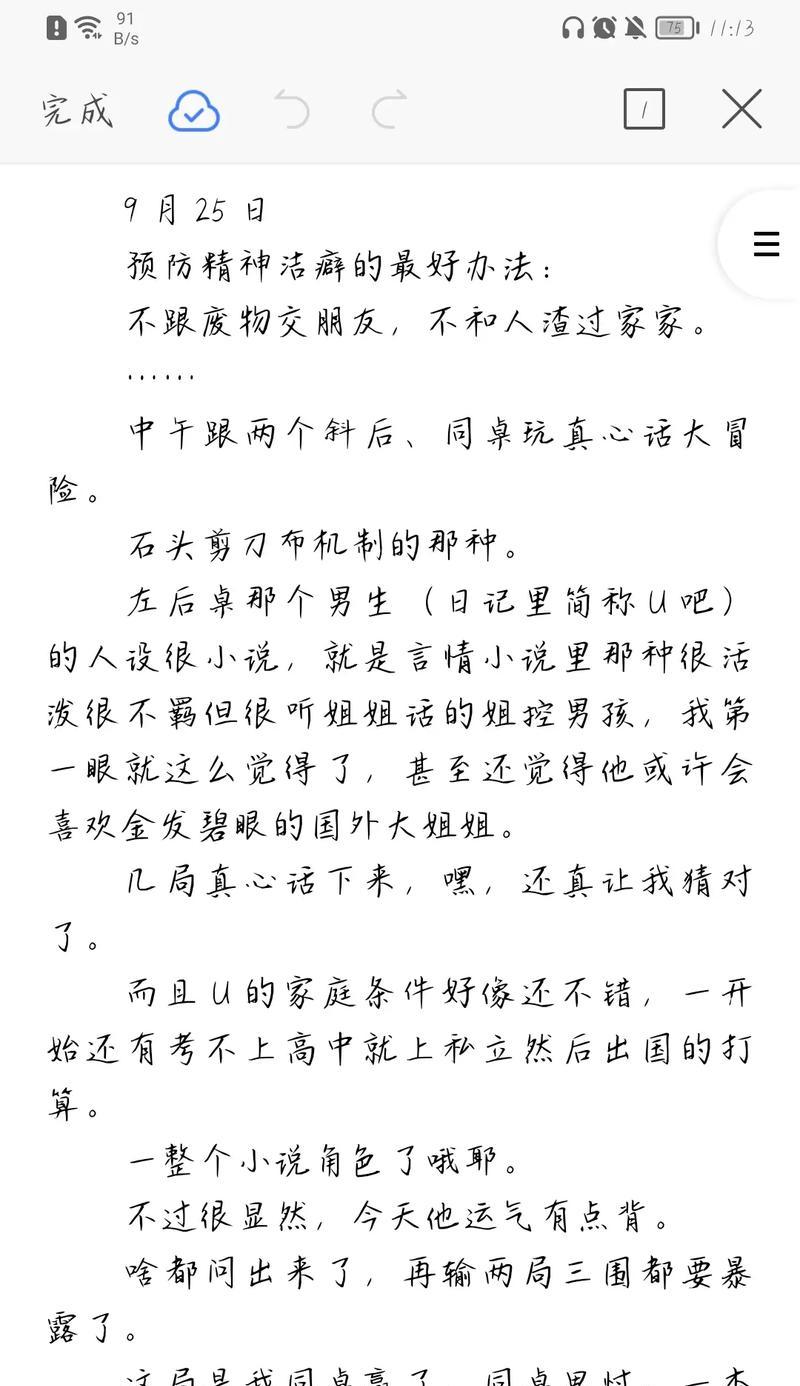 91
B/s
75
11:13
完成
1
9月25日
预防精神洁癖的最好办法：
不跟废物交朋友，不和人渣过家家。
……
中午跟两个斜后、同桌玩真心话大冒
险。
石头剪刀布机制的那种。
左后桌那个男生（日记里简称U吧）
的人设很小说，就是言情小说里那种很活
泼很不羁但很听姐姐话的姐控男孩，我第
一眼就这么觉得了，甚至还觉得他或许会
喜欢金发碧眼的国外大姐姐。
几局真心话下来，嘿，还真让我猜对
了。
而且U的家庭条件好像还不错，一开
始还有考不上高中就上私立然后出国的打
算。
一整个小说角色了哦耶。
不过很显然，今天他运气有点背。
啥都问出来了，再输两局三围都要暴
露了。
这局是我同桌赢了，同桌思忖